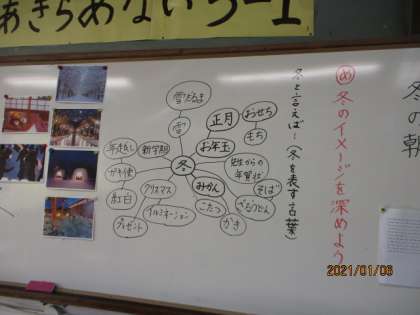 あきらめない
冬の朝
め 冬のイメージを深めよう
冬と言えば… (冬を表す言葉)
雪だるま
雪
正月
おせち
もち
お年玉
先生からの年賀状
冬
新学期
年越し
ガキ使
紅白
クリスマス
プレゼント
イルミネーション
みかん
こたつ
かき
そば
2021/01/06